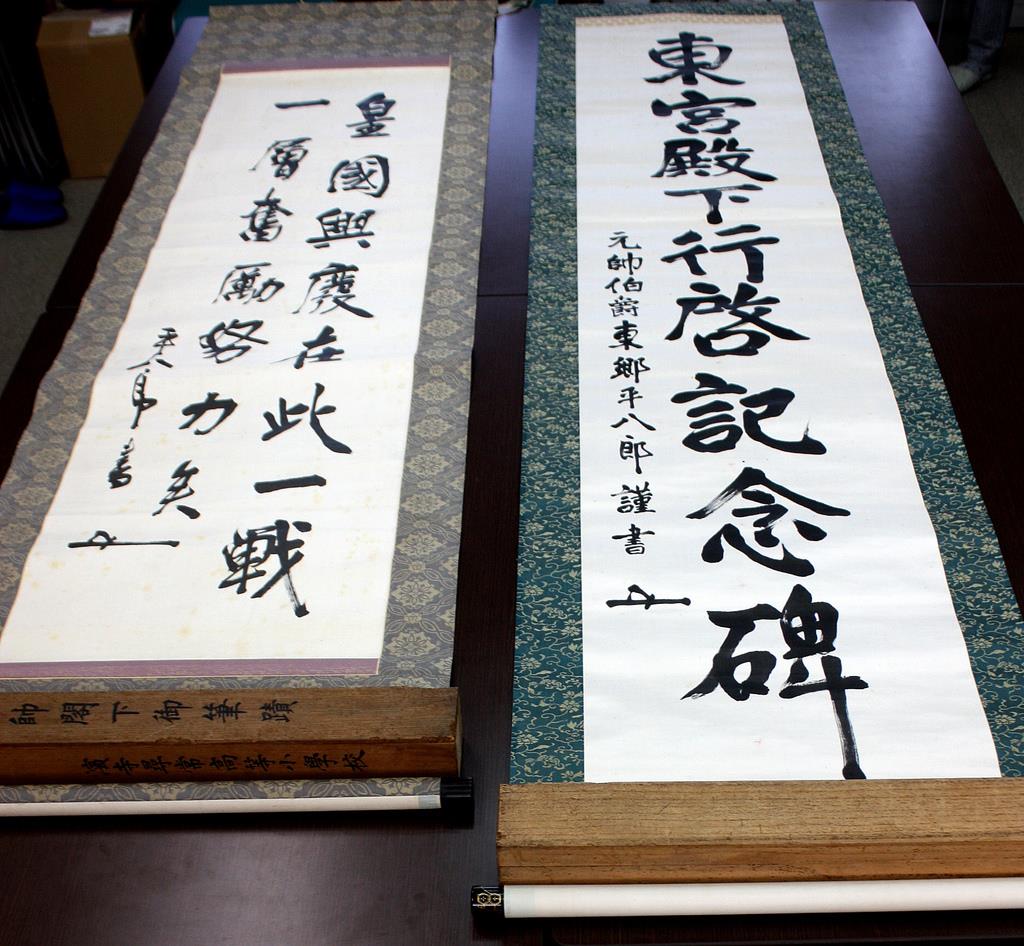 東宮殿下行啓記念碑
元帥伯爵東郷平八郎謹書
皇國興廢在此一戰
一層奮励努力矣
平八郎書
帥閣下御筆蹟
濱寺尋常高等小學校